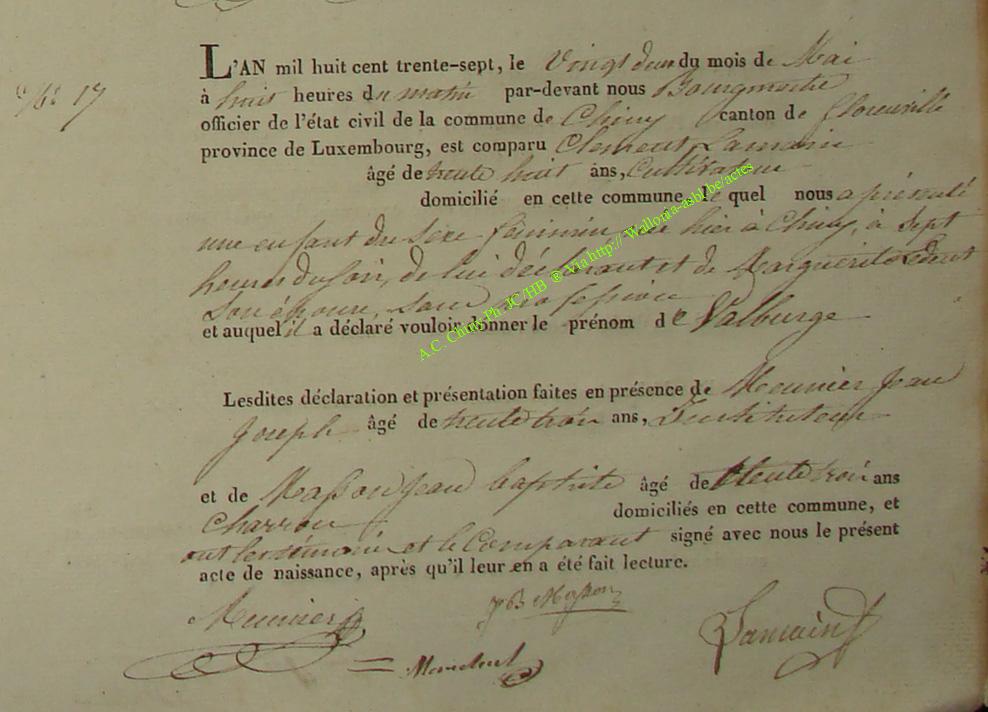 N° 17
L'AN mil huit cent trente-sept, le Vingt deux du mois de Mai
à huit heures du matin par-devant nous Bourgmestre
officier de l'état civil de la commune de Chiny canton de florenville
province de Luxembourg, est comparu Clement Lamain
âgé de trente huit ans, Cultivateur
domicilié en cette commune, le quel nous a présenté
une enfant du sexe féminin, né hier à Chiny, à Sept
heures du soir, de lui déclarant et de Marguerite
Son épouse, sans profession
et auquel il a déclaré vouloir donner le prénom de Valburge
A.C. Chiny Ph. JC/HB ® Via http:// Wallonia-asbl.be/actes
Lesdites déclaration et présentation faites en présence de Meunier Jean
Joseph âgé de trente trois ans, Instituteur
et de Masson Jean baptiste âgé de trente trois ans
Charron domiciliés en cette commune, et
ont les témoins et le Comparant signé avec nous le présent
acte de naissance, après qu'il leur en a été fait lecture.
Meunier JB Masson Lamain
= Marechal